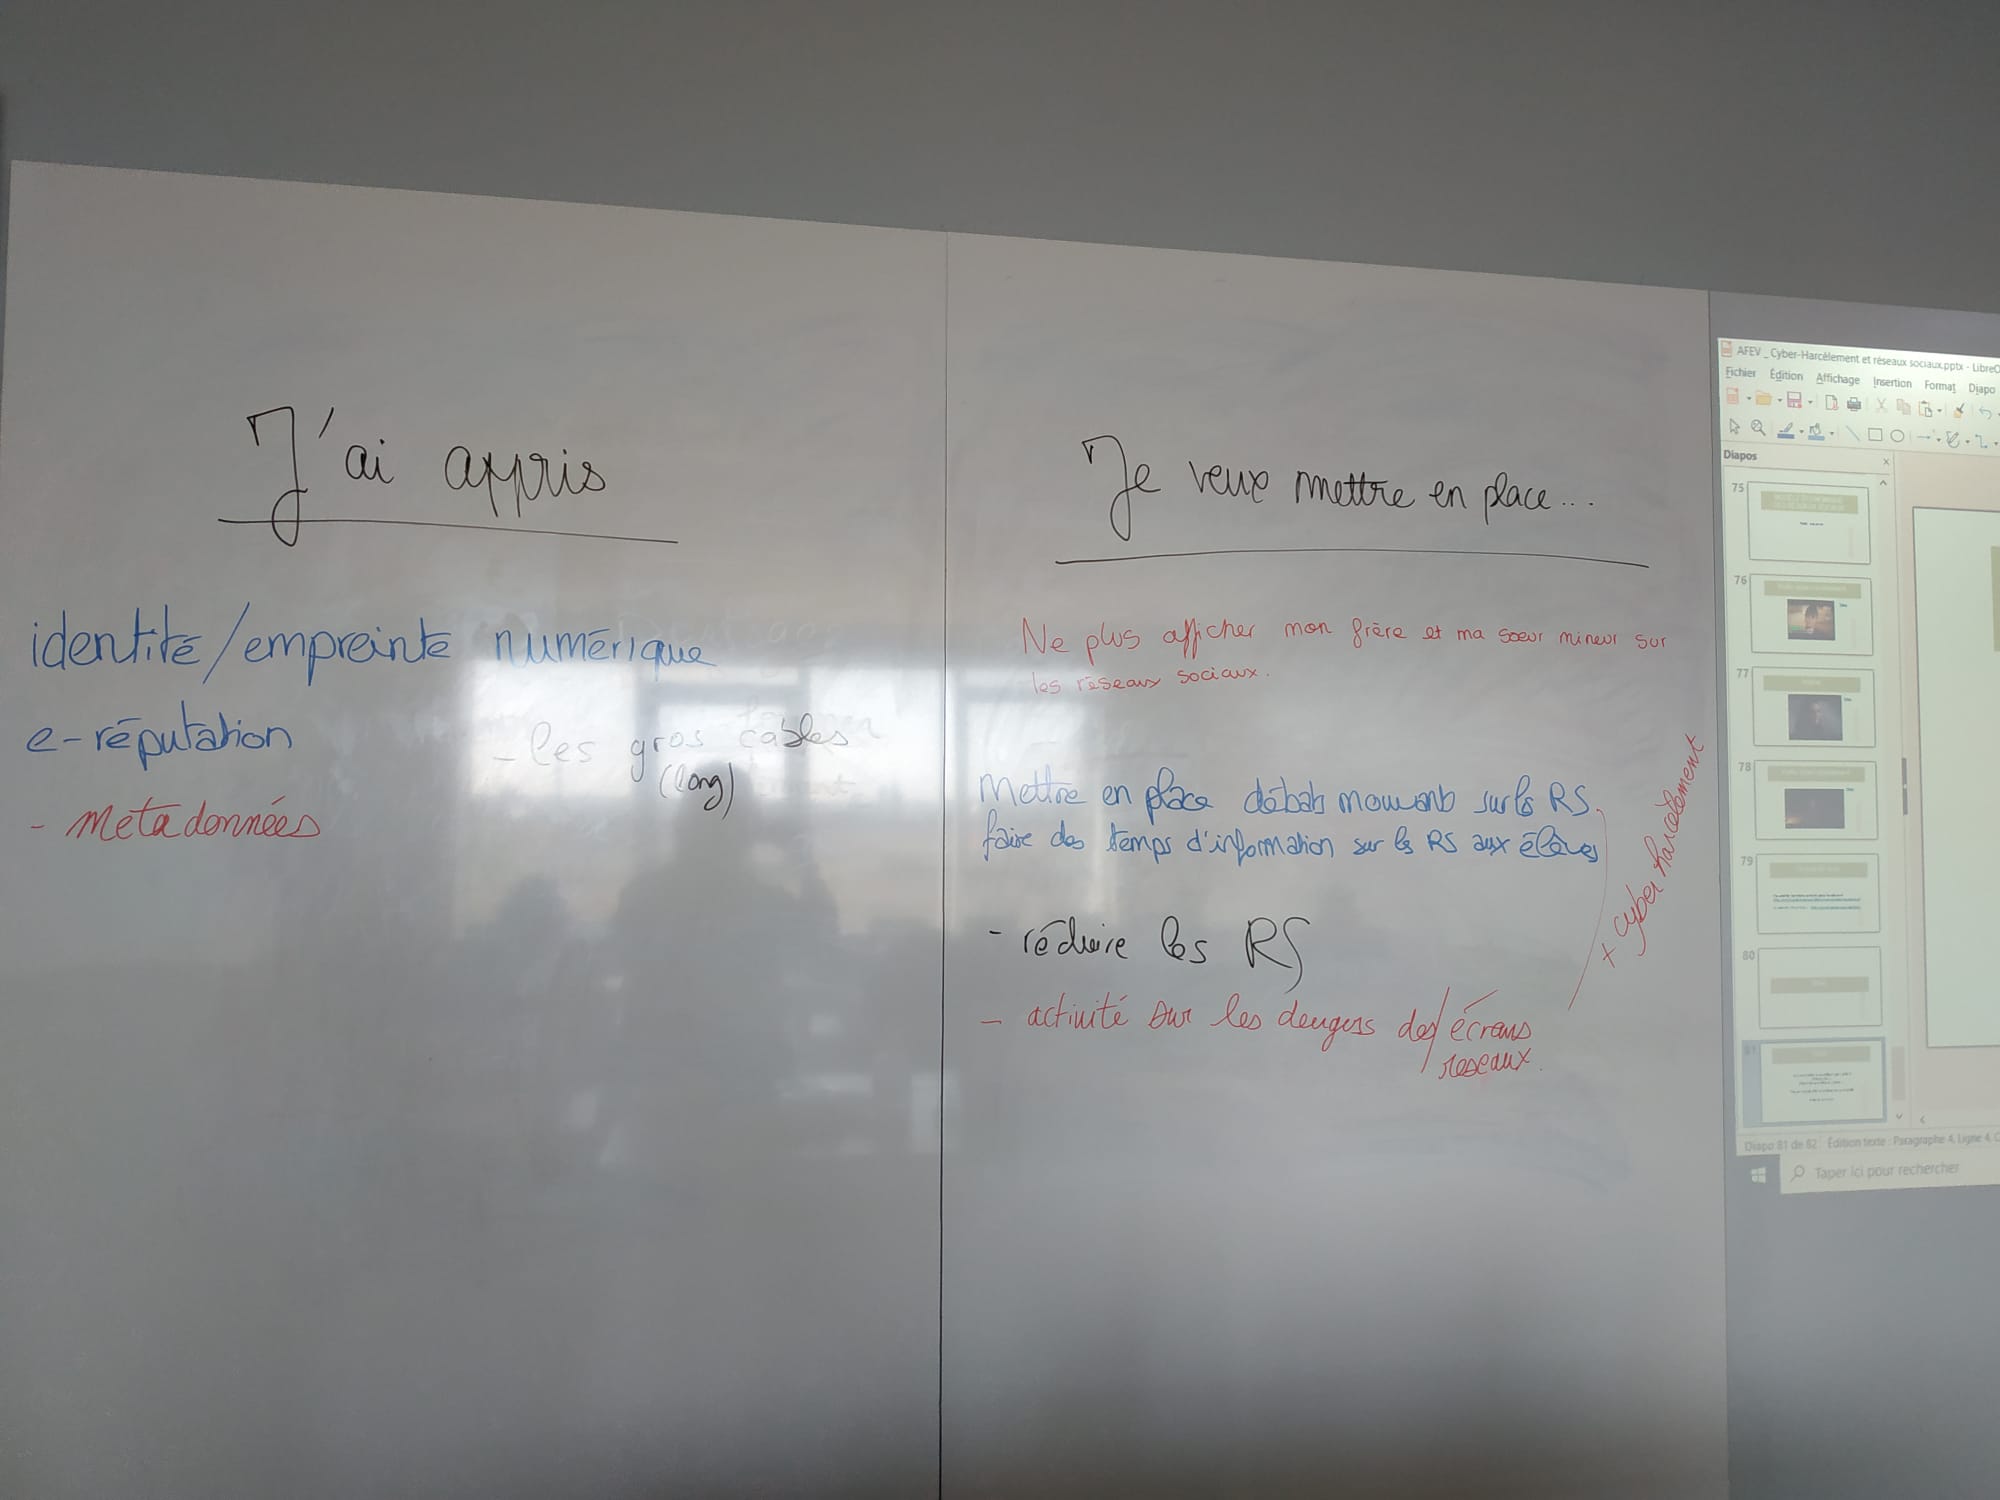 J'ai appris
identité/empreinte numérique
e-réputation
- les gros cables
(long)
- Metadonnées
Je veux mettre en place...
Ne plus afficher mon frère et ma soeur mineur sur
les réseaux sociaux.
Mettre en place débats mouvants sur les RS,
faire des temps d'information sur les RS aux élèves
+ cyber harcèlement
- réduire les RS
- activité sur les dangers des/écrans
reseaux.
AFEV _ Cyber-Harcèlement et réseaux sociaux.pptx - LibreO
Fichier Édition Affichage Insertion Format Diapo
Diapos
75
76
77
78
79
80
81
Diapo 81 de 82 Édition texte : Paragraphe 4, Ligne 4, C
Taper ici pour rechercher